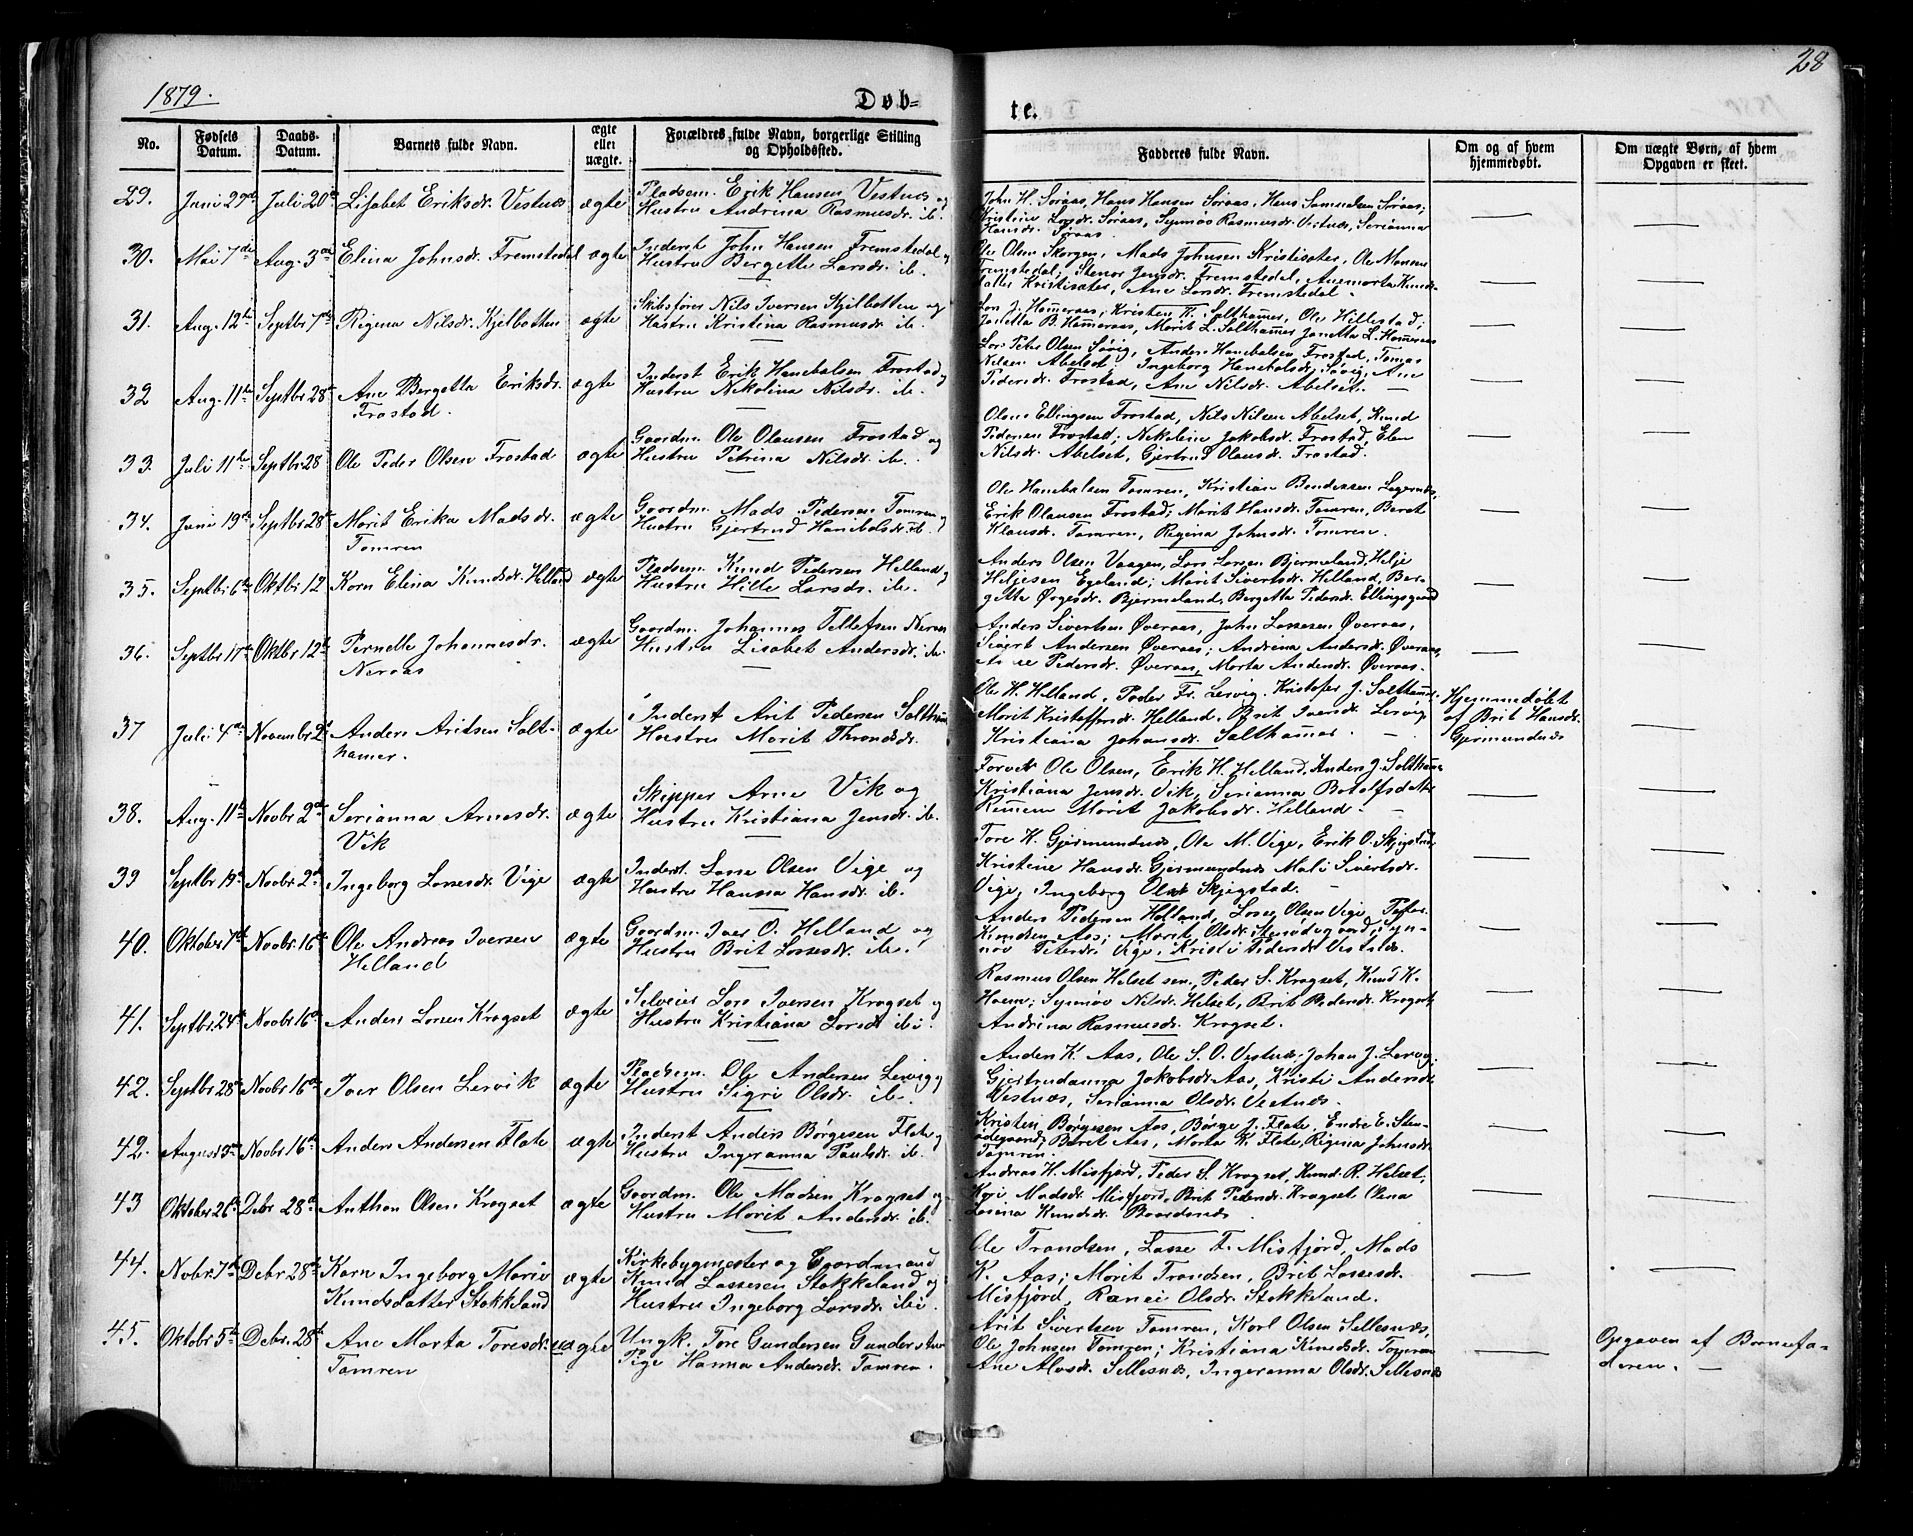 1879.
28
Døb-
te.
No.
Fødsels Datum.
Daabs-Datum.
Barnets fulde Navn.
ægte eller uægte.
Forældres fulde Navn, borgerlige Stilling og Opholdssted.
Fadderes fulde Navn.
Om og af hvem hjemmedøbt.
Om uægte Børn, af hvem Opgaven er skeet.
29. Juni 29de Juli 20de Lisabet Eriksdr. Vestnæs ægte Pladsm. Erik Hansen Vestnæs og
Hustru Andrina Rasmusdr. ib.
John H. Søraas, Hans Hansen Søraas, Hans Samuelsen Søraas;
Kristine Larsdr. Søraas, Synnøv Rasmusdr. Vestnæs, Serianna
Hansdr. Søraas
30. Mai 7de Aug. 3die Elina Johnsdr. Fremstedal ægte Inderst John Hansen Fremstedal og
Hustru Bergette Larsdr. ib.
Ole Olsen Skorgen, Mads Johnsen Kristisæter, Ole Monsen
Fremstedal; Stenor Jensdr. Fremstedal, Anemarta Knuds-
datter Kristisæter, Ane Larsdr. Fremstedal.
31. Aug. 12te Septbr 7de Regina Nilsdr. Kjelbotten ægte Skibsfører Nils Iversen Kjelbotten og
Hustru Kristina Rasmusdr. ib.
Lars J. Hammeraas, Kristen K. Salthammer, Ole Hillestad;
Janetta B. Hammeraas, Marit L. Salthammer Janetta L. Hammeraas
32 Aug. 11te Septbr 28de Ane Bergetta Eriksdr.
Frostad.
ægte Inderst Erik Hanebalsen Frostad og
Hustru Nikolina Nilsdr. ib.
Lars Peter Olsen Søvig, Anders Hanebalsen Frostad, Tomas
Nilsen Abelset, Ingeborg Haneboldsdr. Søvig, Ane
Pedersdr. Frostad, Ane Nilsdr. Abelset.
33. Juli 11te Septbr 28 Ole Peder Olsen Frostad ægte Gaardm. Ole Olausen Frostad og
Hustru Petrina Nilsdr. ib.
Olaus Ellingsen Frostad, Nils Nilsen Abelset, Knud
Pedersen Frostad; Nikoline Jakobsdr. Frostad, Elen
Nilsdr. Abelset, Gjertrud Olausdr. Frostad.
34. Juni 19de Septbr 28de Marit Erika Madsdr.
Tomren
ægte Gaardm. Mads Pedersen Tomren og
Hustru Gjertrud Haniboldsdr. ib.
Ole Hanebalsen Tomren, Kristian Bendixsen Legernæs,
Erik Olausen Frostad; Marit Hansdr. Tomren, Beret
Klausdr. Tomren, Regina Johnsdr. Tomren.
35. Septbr 6te Oktbr 12 Karn Elina Knudsdr. Helland ægte Pladsm. Knud Pedersen Helland og
Hustru Hille Larsdr. ib.
Anders Olsen Vaagen, Lars Larsen Bjermeland, Helje
Heljesen Egeland; Marit Sivertsdr. Helland, Ber-
getta Ørgesdr. Bjermeland, Bergetta Pedersdr. Ellingsgaard
36. Septbr 17de Oktbr 12te Pernelle Johannesdr.
Neraas
ægte Gaardm. Johannes Tellefsen Neraas
Hustru Lisabet Andersdr. ib.
Anders Sivertsen Øveraas, John Lassesen Øveraas,
Sivert Andersen Øveraas; Andrina Andersdr. Øveraas,
Pedersdr. Øveraas, Marta Andersdr. Øveraas.
37 Juli 4de Novembr 2d Anders Aritsen Salt-
hamer.
ægte Inderst Arit Pedersen Salthamer
Hustru Marit Throndsdr.
Ole H. Helland, Peder Fr. Lervig, Kristofer J. Salthamer.
Marit Kristoffersdr. Helland, Brit Iversdr. Lervig
Kristiana Johansdr. Salthamer.
Hjemmedøbt
af Brit Hansdr.
Gjermundnæs
38. Aug. 11te Novbr 2de Serianna Arnesdr.
Vik
ægte Skipper Arne Vik og
Hustru Kristiana Jensdr. ib.
Forvalt Ole Olsen, Erik H. Helland, Anders J. Salthamer
Kristiana Jensdr. Vik, Serianna Botolfsdatter
Remem Marit Jakobsdr. Helland
39 Septbr 19de Novbr 2de Ingeborg Lassesdr. Vige ægte Inderst Lasse Olsen Vige og
Hustru Hanna Hansdr. ib.
Tore K. Gjermundnæs, Ole M. Vige, Erik O. Skjegstad
Kristine Hansdr. Gjermundnæs Mali Sivertsdr.
Vige, Ingeborg Olsdr Skjegstad.
40. Oktober 7de Novbr. 16de Ole Andreas Iversen
Helland
ægte Gaardm. Iver O. Helland og
Hustru Brit Lassesdr. ib.
Anders Pedersen Helland, Lasse Olsen Vige,
Knudsen Aas; Marit Olsdr. Stenødegaard; Syn-
nøv Petersdr. Vige, Kristi Pedersdr Vestnæs.
41. Septbr. 24de Novbr 16de Anders Larsen Kragset ægte Selveier Lars Iversen Kragset og
Hustru Kristiana Larsdr. ibi.
Rasmus Olsen Helset sen, Peder S. Kragset, Knut K.
Hoem; Synnøv Nilsdr. Helset, Brit Pedersdr. Kragset
Andrina Rasmusdr. Kragset.
42. Septbr 28de Novbr 16de Iver Olsen Lervik ægte Pladsm. Ole Andersen Lervig og
Hustru Sigri Olsdr. ib.
Anders K. Aas, Ole S. O. Vestnæs, Johan J. Lervig;
Gjertrudanna Jakobsdr. Aas, Kristi Andersdr.
Vestnæs, Serianna Olsdr. Vestnæs.
42. August 3de Novbr 16de Anders Andersen Flate ægte Inderst Anders Børgesen Flate og
Hustru Ingeranna Paulsdr. ib.
Kristen Børgesen Aas, Børge J. Flate, Endre E. Sten-
ødegaard; Beret Aas, Marta K. Flate, Regina Johnsdr.
Tomren.
43 Oktober 26de Debr. 28de Anthon Olsen Kragset ægte Gaardm. Ole Madsen Kragset og
Hustru Marit Andersdr. ib.
Andreas H. Misfjord, Peder S. Kragset, Knud R. Helset,
Kari Madsdr. Misfjord, Brit Pedersdr. Kragset Olena
Lasina Knudsdr. Baardsnæs.
44. Novbr. 7de Debr. 28de Karn Ingeborg Marie
Knudsdatter Stokkeland
ægte Kirkebygmester og Gaardmand
Knud Lassesen Stokkeland og
Hustru Ingeborg Larsdr. ibi.
Ole Trandsen, Lasse T. Misfjord, Mads
K. Aas; Marit Trondsen, Brit Lassesdr.
Misfjord, Ranei Olsdr. Stokkeland.
45. Oktobr 5te Debr. 28de Ane Marta Toresdr.
Tomren
uægte Ungk. Tore Gundersen Gunderstuen
Pige Hanna Andersdr. Tomren.
Arit Sivertsen Tomren, Karl Olsen Sellesnæs,
Ole Johnsen Tomren; Kristiana Knudsdr. Tomren
Ane Alvsdr. Sellesnæs, Ingeranna Olsdr. Sellesnæs
Opgaven af Barnefa-
deren.